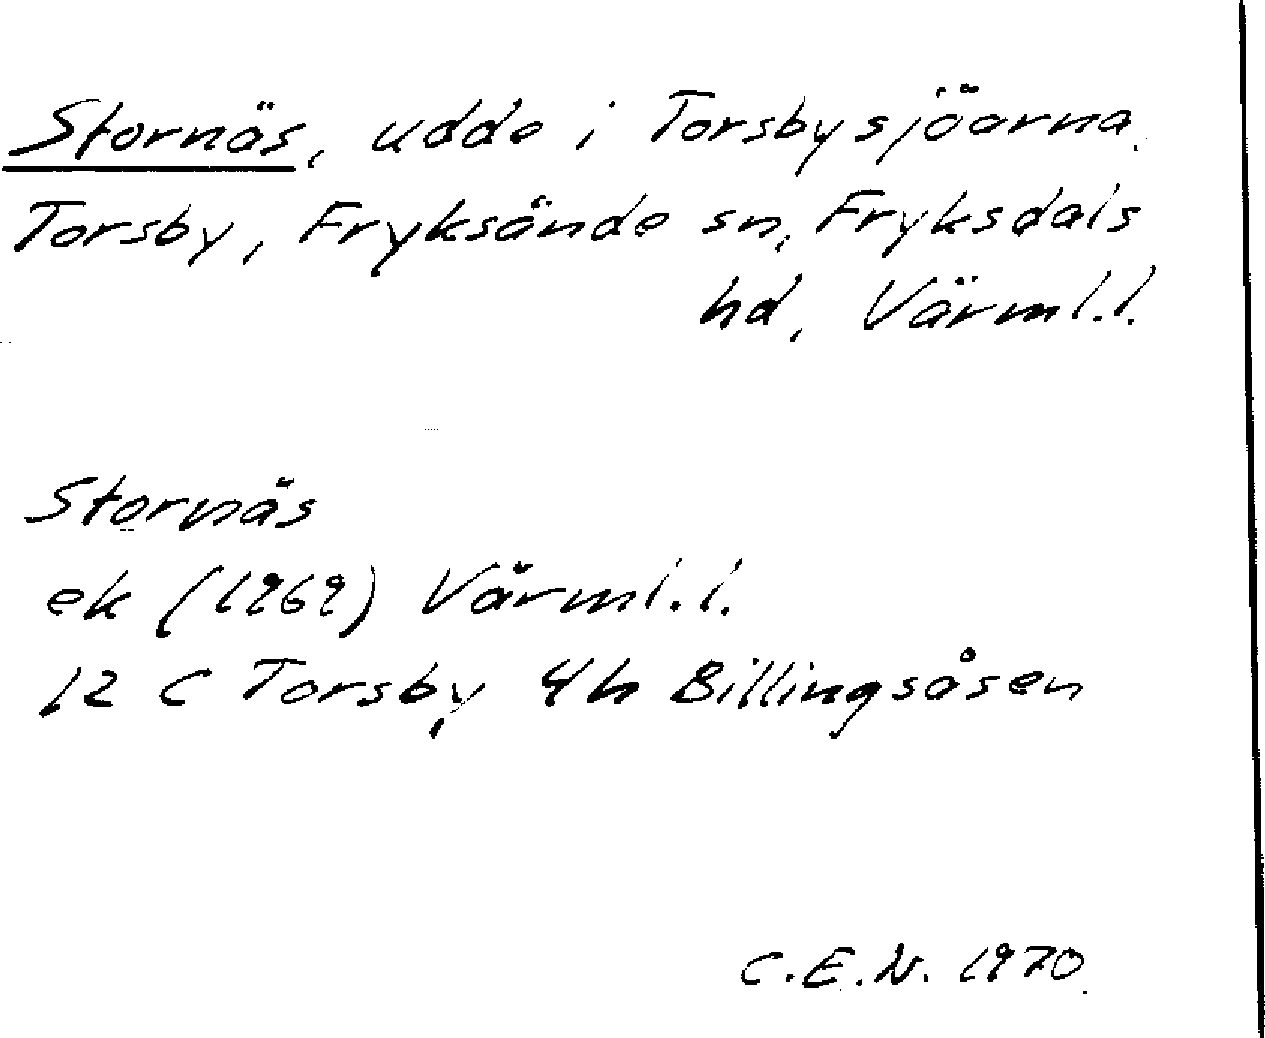 Stornäs, udde i Torsbysjöarna.
Torsby, Fryksände sn, Fryksdals
hd, Värml.l.
Stornäs
ek (1969) Värml.l.
12 C Torsby 4h Billingsåsen
C.E.N. 1970